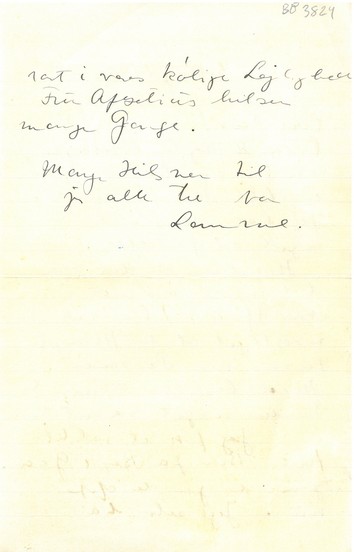 BB 3824
rart i vores kølige Lejlighed
Fru Afzelius hilser
mange Gange.
Mange Hilsner til
jer alle tre fra